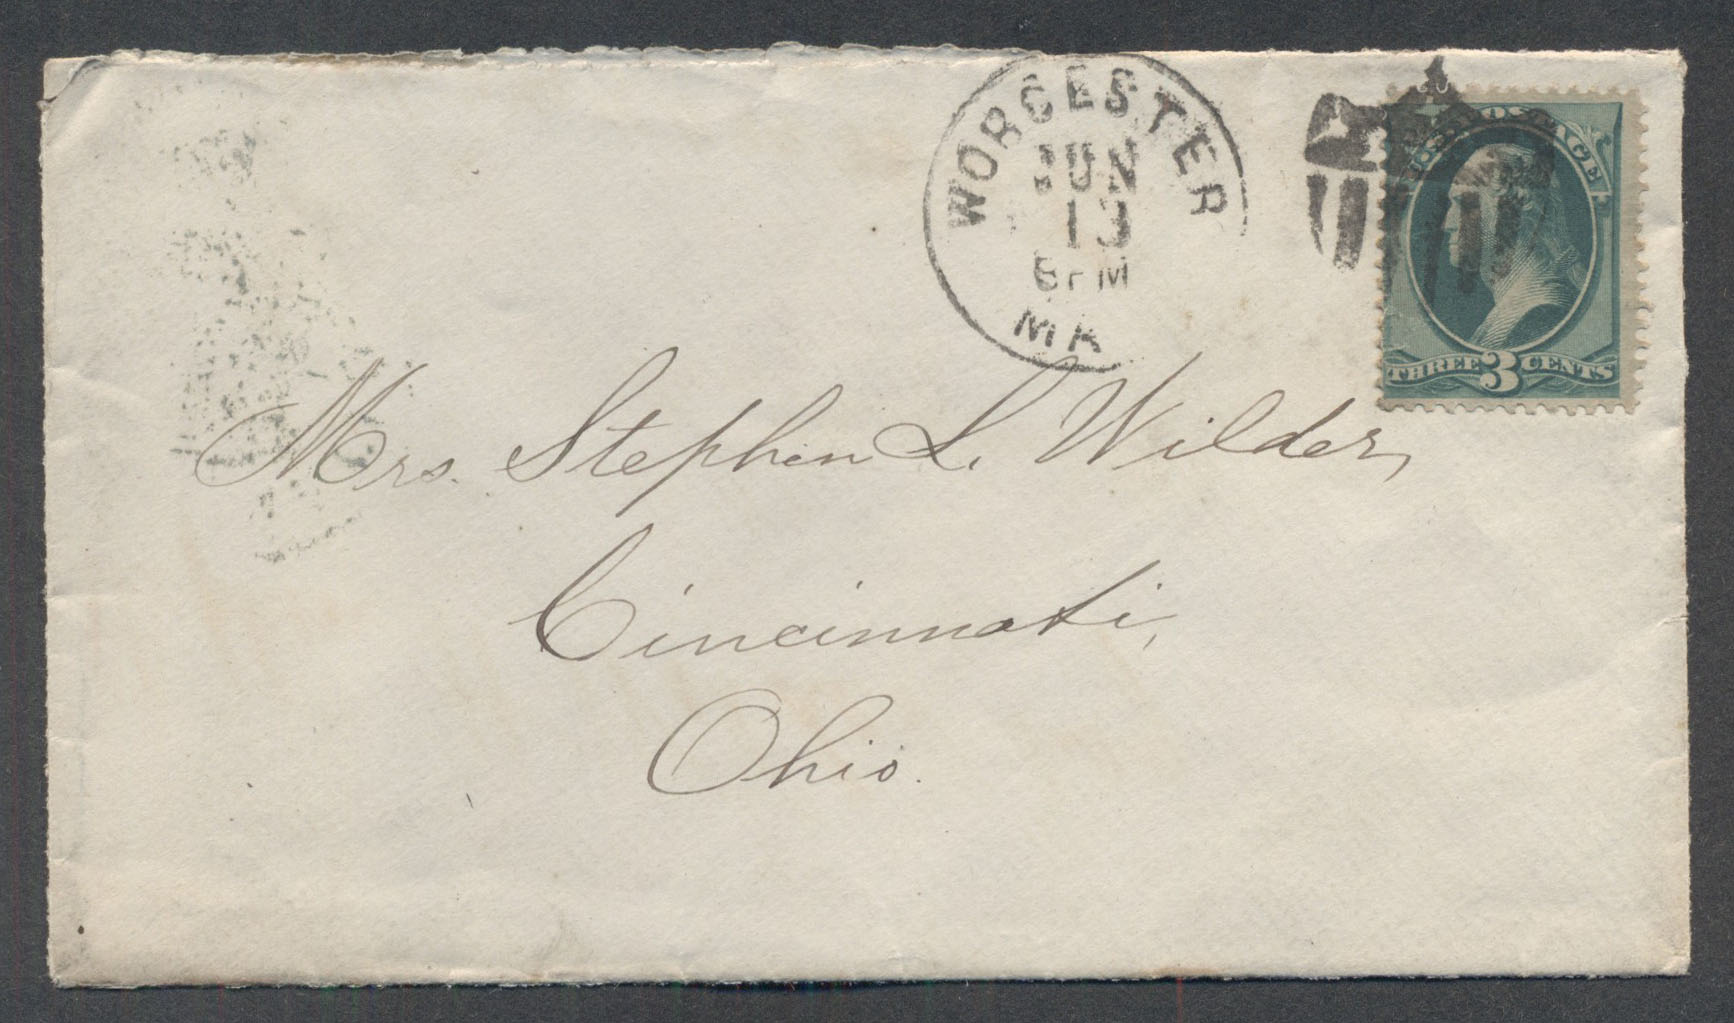 WORCESTER
JUN
13
MA
POSTAGE
THREE 3 CENTS
Mrs. Stephen L. Wilder,
Cincinnati,
Ohio.